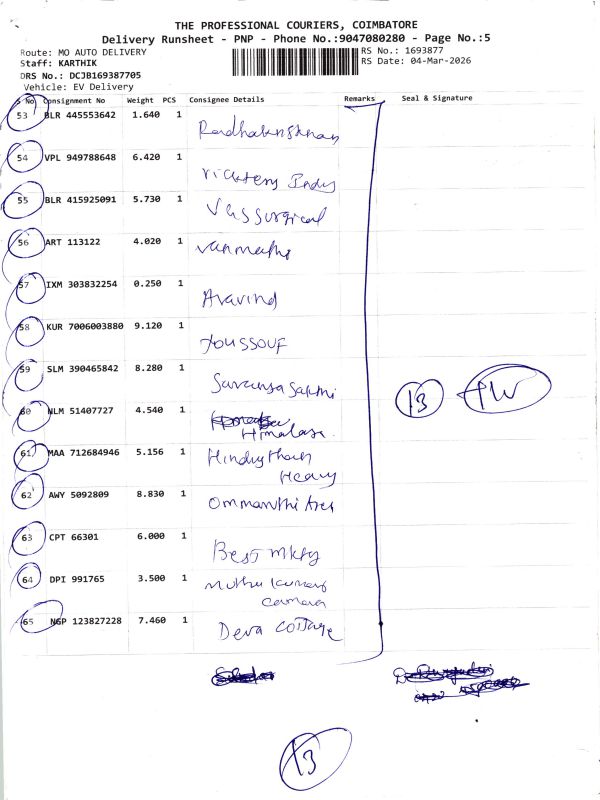 THE PROFESSIONAL COURIERS, COIMBATORE
Delivery Runsheet - PNP - Phone No.:9047080280 - Page No.:5
Route: MO AUTO DELIVERY
RS No.: 1693877
Staff: KARTHIK
RS Date: 04-Mar-2026
DRS No.: DCJB169387705
Vehicle: EV Delivery
No Consignment No Weight PCS Consignee Details Remarks Seal & Signature
53 BLR 445553642 1.640 1
Radhakrishnan
54 VPL 949788648 6.420 1
55 BLR 415925091 5.730 1
Surgical
56 ART 113122 4.020 1
Vanmathi
57 IXM 303832254 0.250 1
Aravind
58 KUR 7006003880 9.120 1
Youssouf
59 SLM 390465842 8.280 1
60 NLM 51407727 4.540 1
Himalaya
13
61 MAA 712684946 5.156 1
Heavy
62 AWY 5092809 8.830 1
63 CPT 66301 6.000 1
Best mktg
64 DPI 991765 3.500 1
65 NGP 123827228 7.460 1
Deva Cottage
13